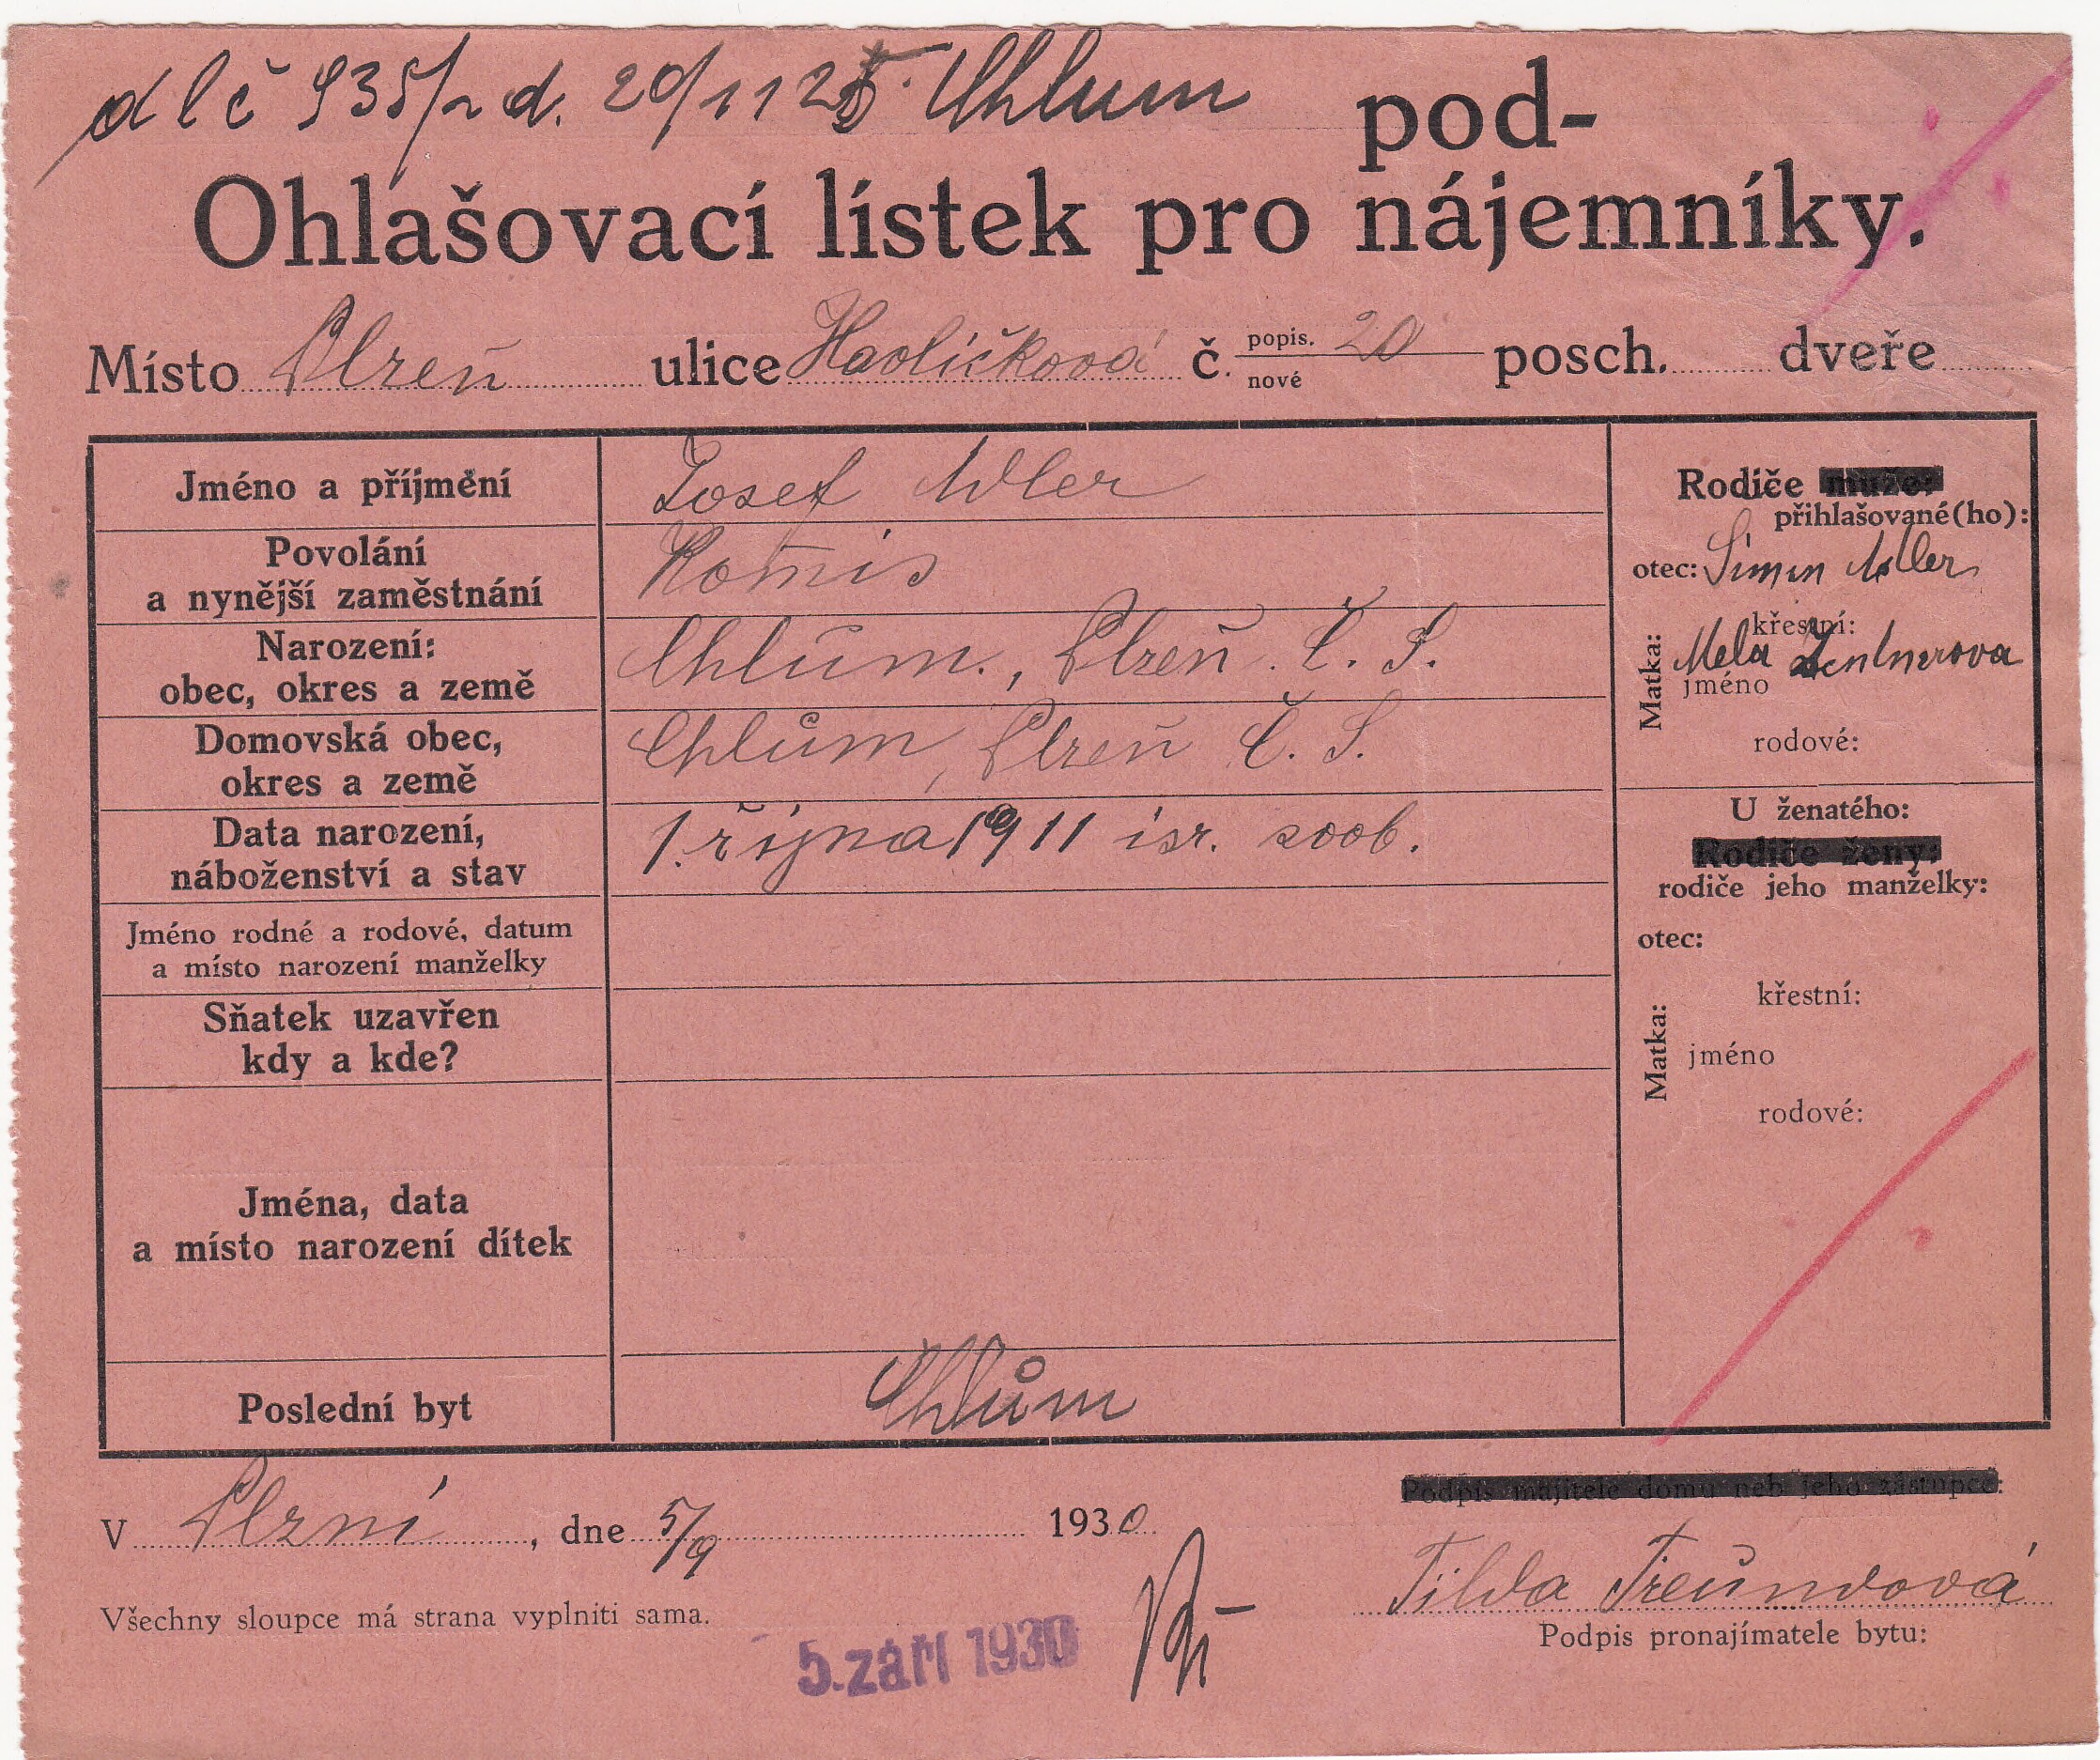 d l č 935/2 d. 20/11 25 Chlum
pod-
Ohlašovací lístek pro nájemníky.
Místo Plzeň ulice Havlíčková č. popis. 20 posch. dveře
nové
Jméno a příjmění Josef Adler
Povolání
a nynější zaměstnání Komis
Narození:
obec, okres a země Chlum., Plzeň. Č. S.
Domovská obec,
okres a země Chlům, Plzeň Č. S.
Data narození,
náboženství a stav 1. října 1911 isr. svob.
Jméno rodné a rodové, datum
a místo narození manželky
Sňatek uzavřen
kdy a kde?
Jména, data
a místo narození dítek
Poslední byt Chlům
Rodiče muže:
přihlašované(ho):
otec: Simon Adler
křestní:
Matka: Mela Zentnerova
jméno
rodové:
U ženatého:
Rodiče ženy:
rodiče jeho manželky:
otec:
křestní:
Matka: jméno
rodové:
V Plzni, dne 5/9 1930
Podpis majitele domu neb jeho zástupce:
Tilda Freundová
Podpis pronajímatele bytu:
Všechny sloupce má strana vyplniti sama.
5. září 1930